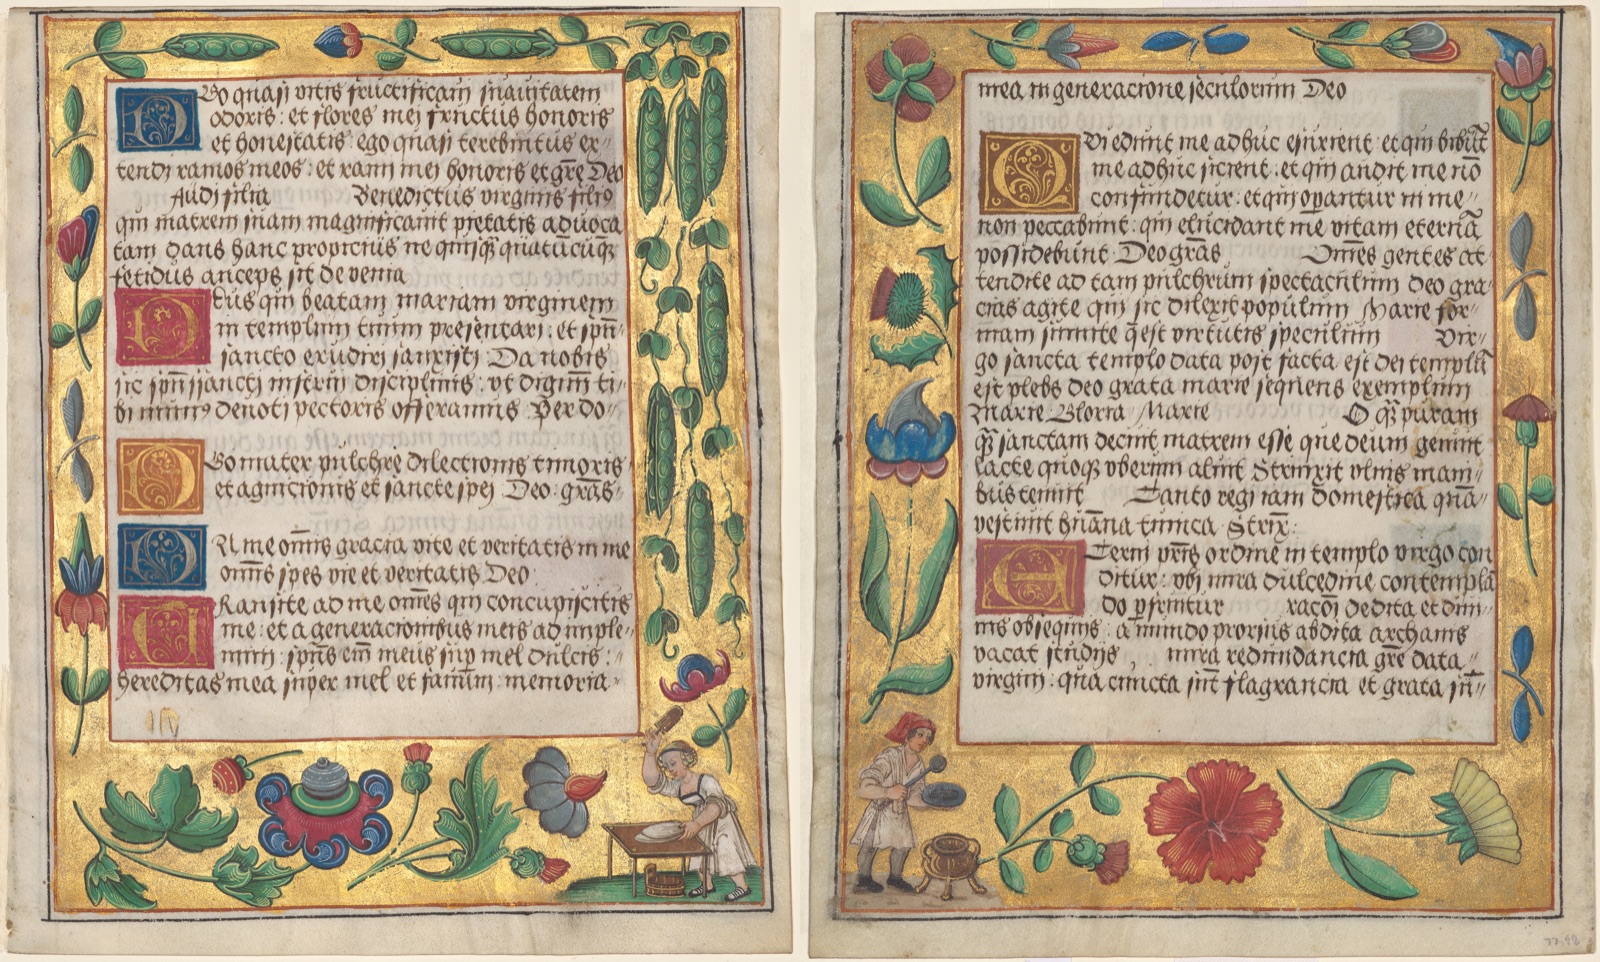 Ego quasi vitis fructificaui suauitatem
odoris: et flores mei fructus honoris
et honestatis: ego quasi terebintus ex-
tendi ramos meos: et rami mei honoris et grē Deo
Audi filia Benedictus virginis filiꝰ
qui matrem suam magnificauit pietatis aduoca
tam dans hanc propicius ne quisqꝫ quātūcūqꝫ
fetidus anceps sit de venia
Deus qui beatam mariam virginem
in templum tuum presentari: et spū-
sancto erudiri sanxisti: Da nobis
sic spūssancti disciplinis: vt digni ti-
bi deuoti pectoris offeramus: Per do-
Ego mater pulchre dilectionis timoris
et agnicionis et sancte spei Deo: grās
In me om̄is gracia vite et veritatis in me
om̄is spes vie et veritatis Deo
Transite ad me om̄es qui concupiscitis
me: et a generacionibus meis adimple-
mini: spūs em̄ meus sup mel dulcis:
hereditas mea super mel et fauum: memoria
mea in generacione seculorum Deo
Qui edunt me adhuc esurient: et qui bibūt
me adhuc sicient: et qui audit me nō
confundetur: et qui opantur in me
non peccabunt: qui elucidant me vitam eternā
possidebunt: Deo grās Om̄es gentes at-
tendite ad tam pulchrum spectaculum deo gra-
cias agite qui sic dilexit populum Marie for-
mam sumite q̄ est virtutis speculum Vir-
go sancta templo data post facta est dei templū
est plebs deo grata marie sequens exemplum
Marie: Gloria Marie O qꝫ puram
qꝫ sanctam decuit matrem esse que deum genuit
lacte quoqꝫ vberum aluit Strinxit vlnis mani-
bus tenuit Tanto regi iam domestica quā
vestiuit hūana tunica: Strinx:
Eterni vr̄is ordine in templo virgo con
ditur: vbi mira dulcedine contempla
do pfruitur racōi dedita et diui-
nis obsequiis: a mundo prorsus abdita archanis
vacat studijs, mira redundancia grē data
virgini: qua cuncta sūt flagrancia et grata
77.98